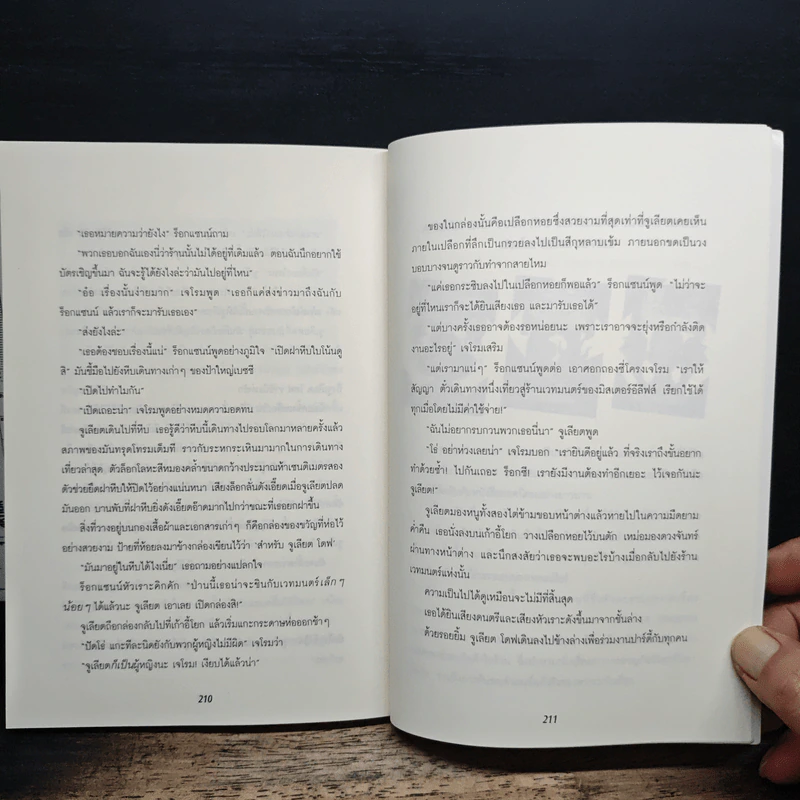 "เธอหมายความว่ายังไง" ร็อกแซนน์ถาม
"พวกเธอบอกฉันเองนี่ว่าร้านนั้นไม่ได้อยู่ที่เดิมแล้ว ตอนฉันนึกอยากใช้
บัตรเชิญขึ้นมา ฉันจะรู้ได้ยังไงล่ะว่ามันไปอยู่ที่ไหน"
"อ๋อ เรื่องนั้นง่ายมาก" เจโรมพูด "เธอก็แค่ส่งข่าวมาถึงฉันกับ
ร็อกแซนน์ แล้วเราก็จะมารับเธอเอง"
"ส่งยังไงล่ะ"
"เธอต้องชอบเรื่องนี้แน่" ร็อกแซนน์พูดอย่างภูมิใจ "เปิดฝาหีบใบโน้นดู
สิ" มันชี้มือไปยังหีบเดินทางเก่าๆ ของป้าใหญ่เบซซี
"เปิดไปทำไมกัน"
"เปิดเถอะน่า" เจโรมพูดอย่างหมดความอดทน
จูเลียตเดินไปที่หีบ เธอรู้ดีว่าหีบนี้เดินทางไปรอบโลกมาหลายครั้งแล้ว
สภาพของมันทรุดโทรมเต็มที ราวกับระหกระเหินมามากในการเดินทาง
เที่ยวล่าสุด ตัวล็อกโลหะสีหมองคล้ำขนาดกว้างประมาณห้าเซนติเมตรสอง
ตัวช่วยยึดฝาหีบให้ปิดไว้อย่างแน่นหนา เสียงล็อกลั่นดังเอี๊ยดเมื่อจูเลียตปลด
มันออก บานพับที่ฝาหีบยิ่งดังเอี๊ยดอ๊าดมากไปกว่าขณะที่เธอยกฝาขึ้น
สิ่งที่วางอยู่บนกองเสื้อผ้าและเอกสารเก่าๆ ก็คือกล่องของขวัญที่ห่อไว้
อย่างสวยงาม ป้ายที่ห้อยลงมาข้างกล่องเขียนไว้ว่า 'สำหรับ จูเลียต โดฟ'
"มันมาอยู่ในหีบได้ไงเนี่ย" เธอถามอย่างแปลกใจ
ร็อกแซนน์หัวเราะคิกคัก "ป่านนี้เธอน่าจะชินกับเวทมนตร์เล็กๆ
น้อยๆ ได้แล้วนะ จูเลียต เอาเลย เปิดกล่องสิ!"
จูเลียตถือกล่องกลับไปที่เก้าอี้โยก แล้วเริ่มแกะกระดาษห่อออกช้าๆ
"ปัดโธ่ แกะทีละนิดยังกับพวกผู้หญิงไม่มีผิด" เจโรมว่า
"จูเลียตก็เป็นผู้หญิงนะ เจโรม! เงียบได้แล้วน่า"
210
ของในกล่องนั้นคือเปลือกหอยซึ่งสวยงามที่สุดเท่าที่จูเลียตเคยเห็น
ภายในเปลือกที่ลึกเป็นกรวยลงไปเป็นสีกุหลาบเข้ม ภายนอกขดเป็นวง
บอบบางจนดูราวกับทำจากสายไหม
"แค่เธอกระซิบลงไปในเปลือกหอยก็พอแล้ว" ร็อกแซนน์พูด "ไม่ว่าจะ
อยู่ที่ไหนเราก็จะได้ยินเสียงเธอ และมารับเธอได้"
"แต่บางครั้งเธออาจต้องรอหน่อยนะ เพราะเราอาจจะยุ่งหรือกำลังติด
งานอะไรอยู่" เจโรมเสริม
"แต่เรามาแน่ๆ" ร็อกแซนน์พูดต่อ เอาศอกถองซี่โครงเจโรม "เราให้
สัญญา ตั๋วเดินทางหนึ่งเที่ยวสู่ร้านเวทมนตร์ของมิสเตอร์อีลีฟส์ เรียกใช้ได้
ทุกเมื่อโดยไม่มีค่าใช้จ่าย!"
"ฉันไม่อยากรบกวนพวกเธอนี่นา" จูเลียตพูด
"โธ่ อย่าห่วงเลยน่า" เจโรมบอก "เรายินดีอยู่แล้ว ที่จริงเราถึงขั้นอยาก
ทำด้วยซ้ำ! ไปกันเถอะ ร็อกซี! เรายังมีงานต้องทำอีกเยอะ ไว้เจอกันนะ
จูเลียต!"
จูเลียตมองหนูทั้งสองไต่ข้ามขอบหน้าต่างแล้วหายไปในความมืดยาม
ค่ำคืน เธอนั่งลงบนเก้าอี้โยก วางเปลือกหอยไว้บนตัก เหม่อมองดวงจันทร์
ผ่านทางหน้าต่าง และนึกสงสัยว่าเธอจะพบอะไรบ้างเมื่อกลับไปยังร้าน
เวทมนตร์แห่งนั้น
ความเป็นไปได้ดูเหมือนจะไม่มีที่สิ้นสุด
เธอได้ยินเสียงดนตรีและเสียงหัวเราะดังขึ้นมาจากชั้นล่าง
ด้วยรอยยิ้ม จูเลียต โดฟเดินลงไปข้างล่างเพื่อร่วมงานปาร์ตี้กับทุกคน
211